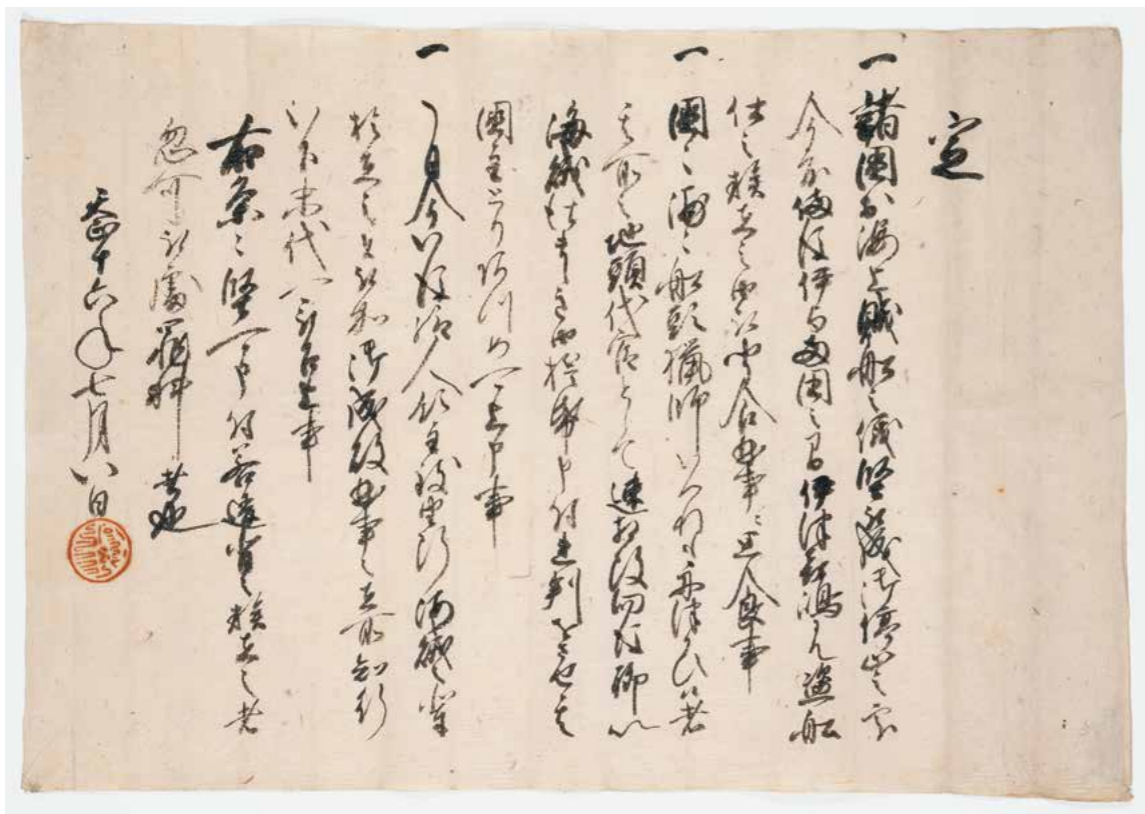 定
一 諸国於海上賊船之儀堅被成御停止之処
今度備後伊与両国之間伊津喜嶋にて盗船
仕之族在之由被聞食曲事ニ思食事
一 国々浦々船頭猟師いつれも舟つかひ候者
其所之地頭代官として速相改向後聊以
海賊仕ましき由誓紙申付連判をさせ其
国主とりあつめ可上申事
一 自今以後給人領主致由断海賊輩
於在之者被加御成敗曲事之在所知行
以下末代可被召上事
右条々堅可申付若違背之族在之者
忽可被処罪科者也
天正十六年七月八日